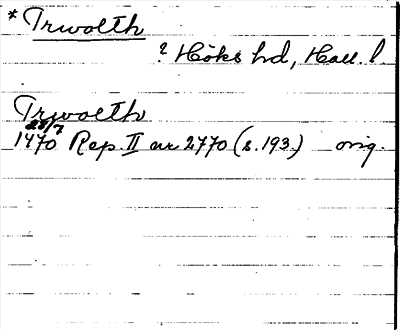 * Trwolth
? Höks hd, Hall. l
Trwolth
28/7
1470 Rep. II nr 2770 (s. 193.) orig.